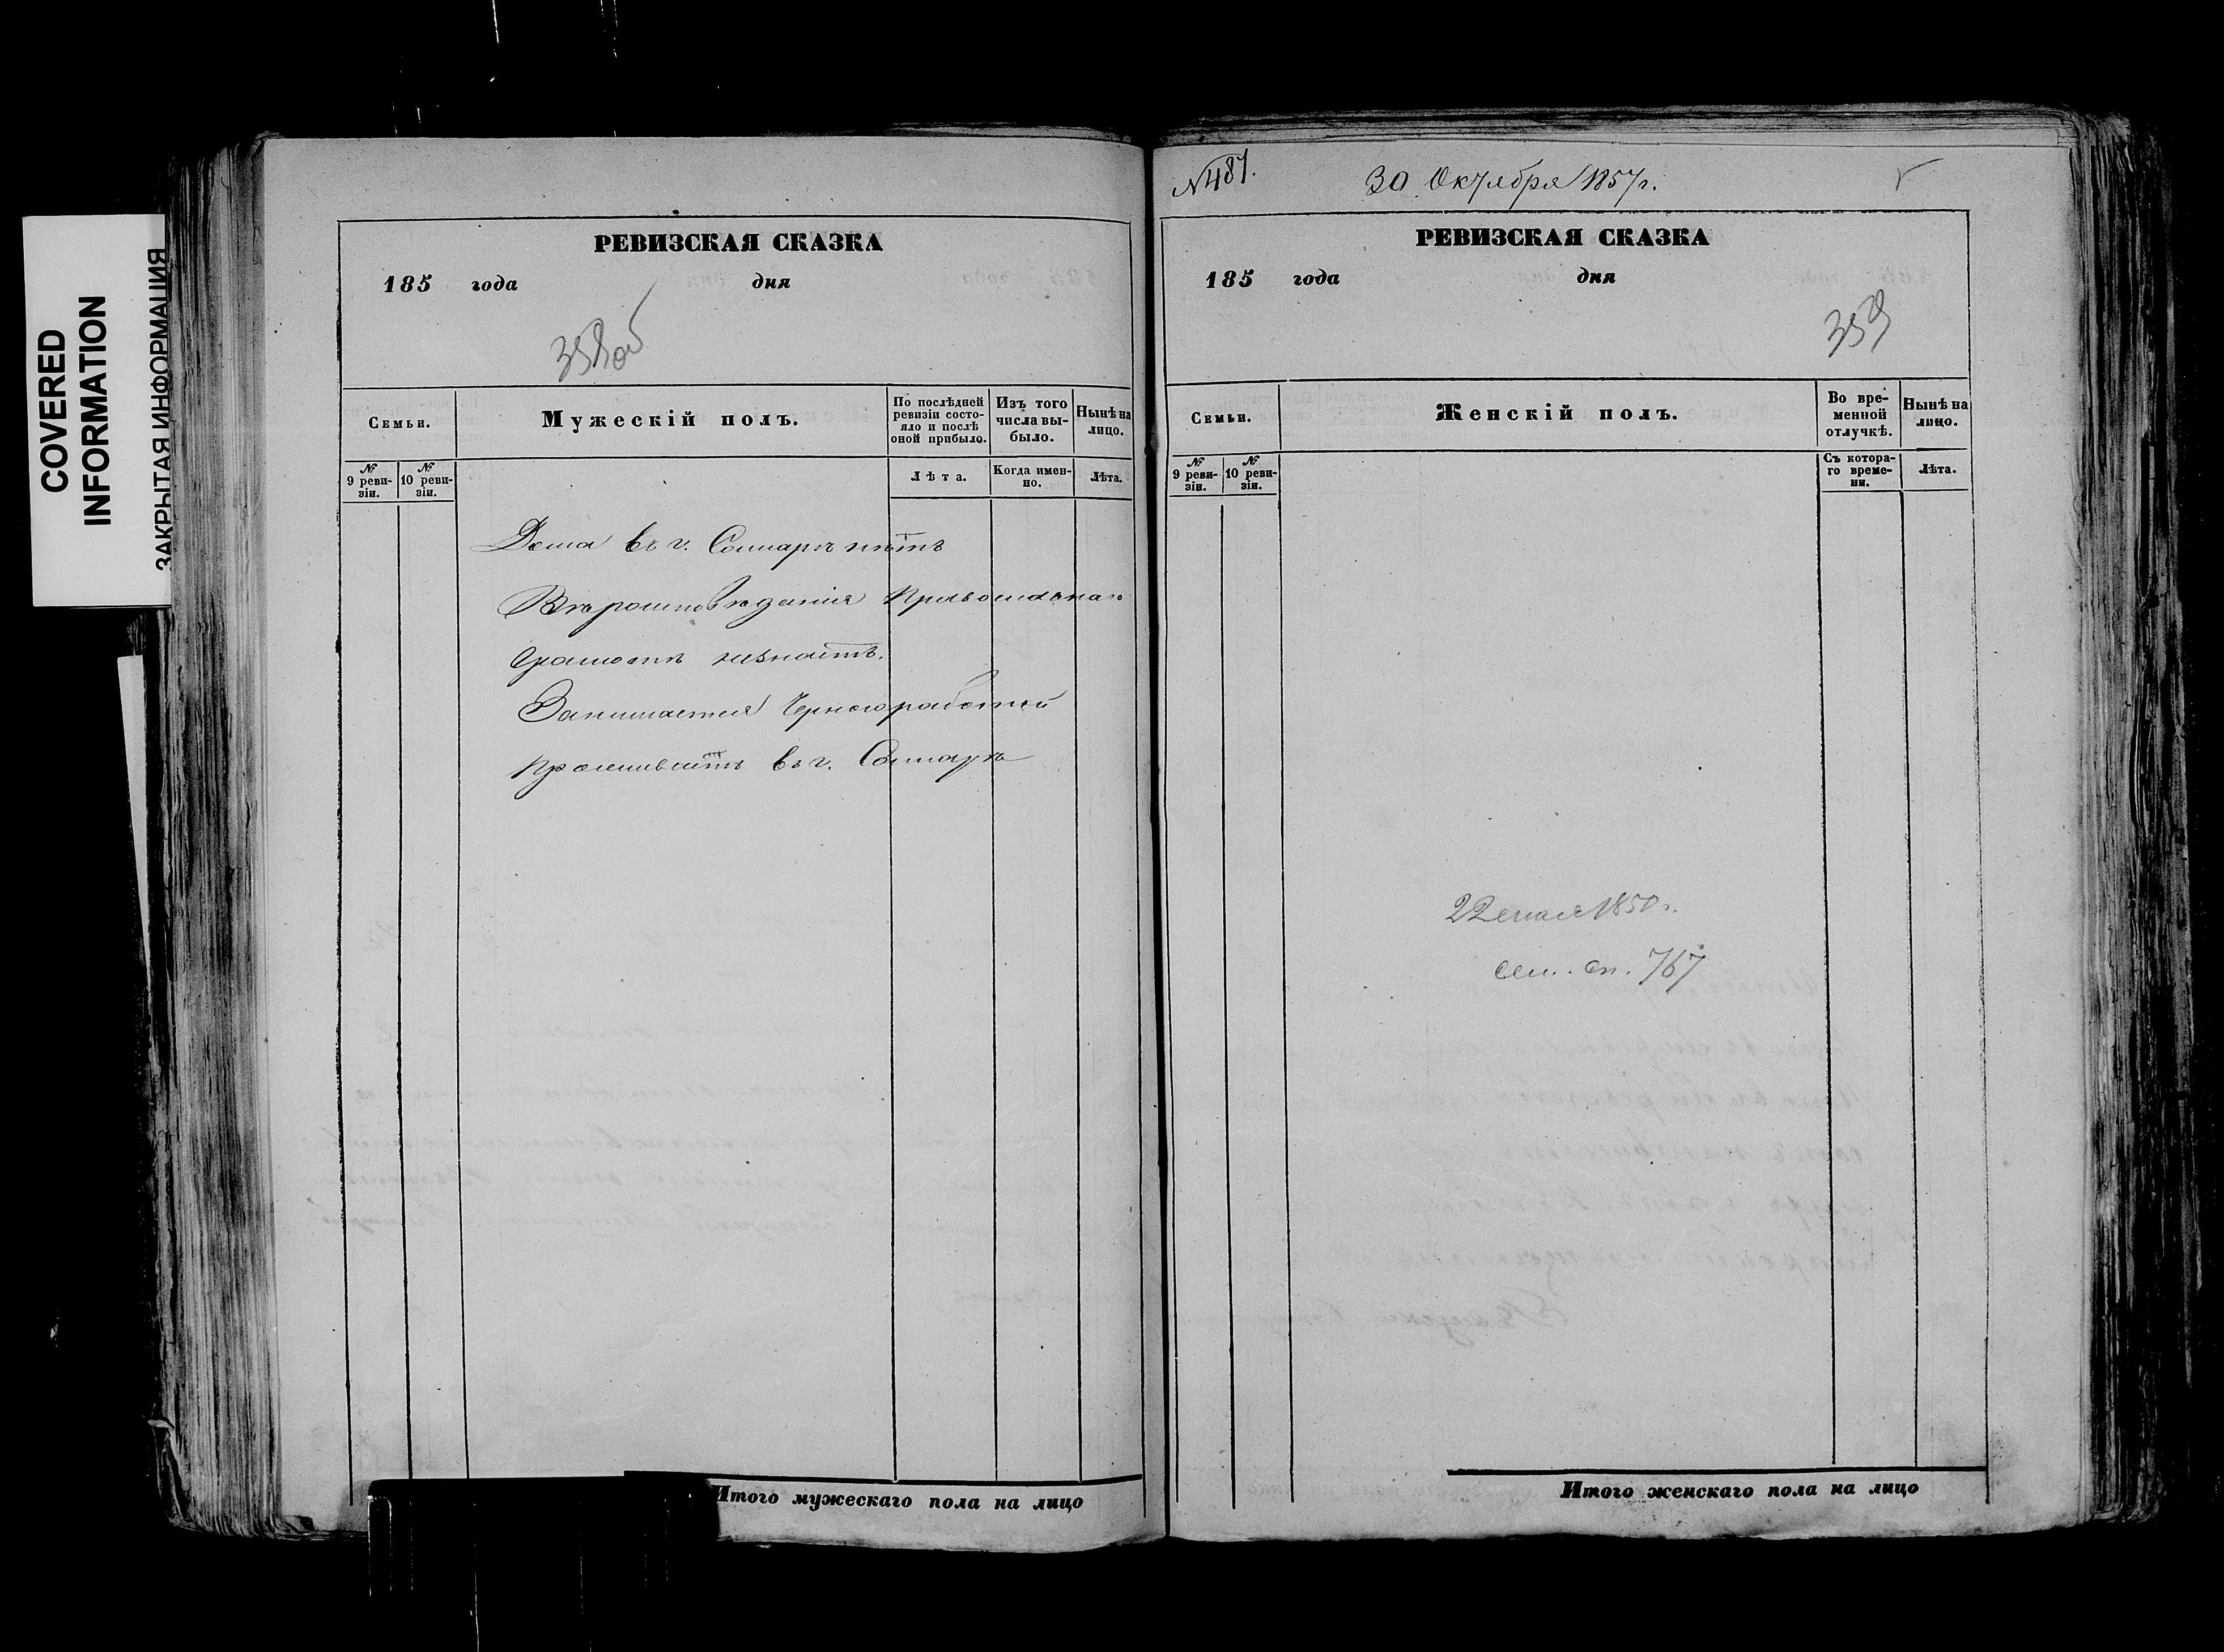 COVERED
INFORMATION
ЗАКРЫТАЯ ИНФОРМАЦИЯ
РЕВИЗСКАЯ СКАЗКА
185 года дня
358 об
Семьи.
Мужескій полъ.
По послѣдней
ревизіи состо-
яло и послѣ
оной прибыло.
Изъ того
числа вы-
было.
Нынѣ на
лицо.
№
9 реви-
зіи.
№
10 реви-
зіи.
Лѣта.
Когда имен-
но.
Лѣта.
Дома въ г. Самарѣ нѣтъ
Вѣроисповѣданія Православнаго
Грамотѣ незнаетъ.
Занимается Черноработой
Проживаетъ въ г. Самарѣ
Итого мужескаго пола на лицо
№ 487.
30 Октября 1857 г.
РЕВИЗСКАЯ СКАЗКА
185 года дня
359
Семьи.
Женскій полъ.
Во вре-
менной
отлучкѣ.
Нынѣ на
лицо.
№
9 реви-
зіи.
№
10 реви-
зіи.
Съ котора-
го време-
ни.
Лѣта.
22 1850 г.
сем. сп. 767
Итого женскаго пола на лицо